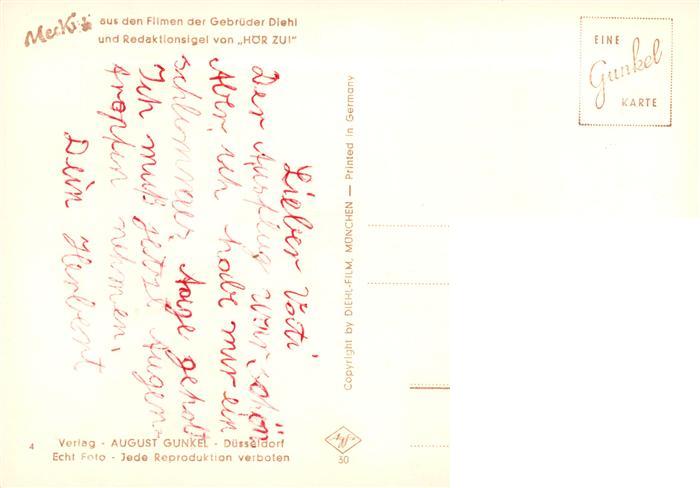 Mecki aus den Filmen der Gebrüder Diehl
und Redaktionsigel von „HÖR ZU!"
EINE
Gunkel
KARTE
Lieber Vati
Der Ausflug war schön
Aber ich habe mir ein
schlimmes Auge geholt
Ich muß jetzt Augen-
tropfen nehmen.
Dein Herbert
Copyright by DIEHL-FILM, MÜNCHEN — Printed in Germany
4
Verlag - AUGUST GUNKEL - Düsseldorf
Echt Foto - Jede Reproduktion verboten
30